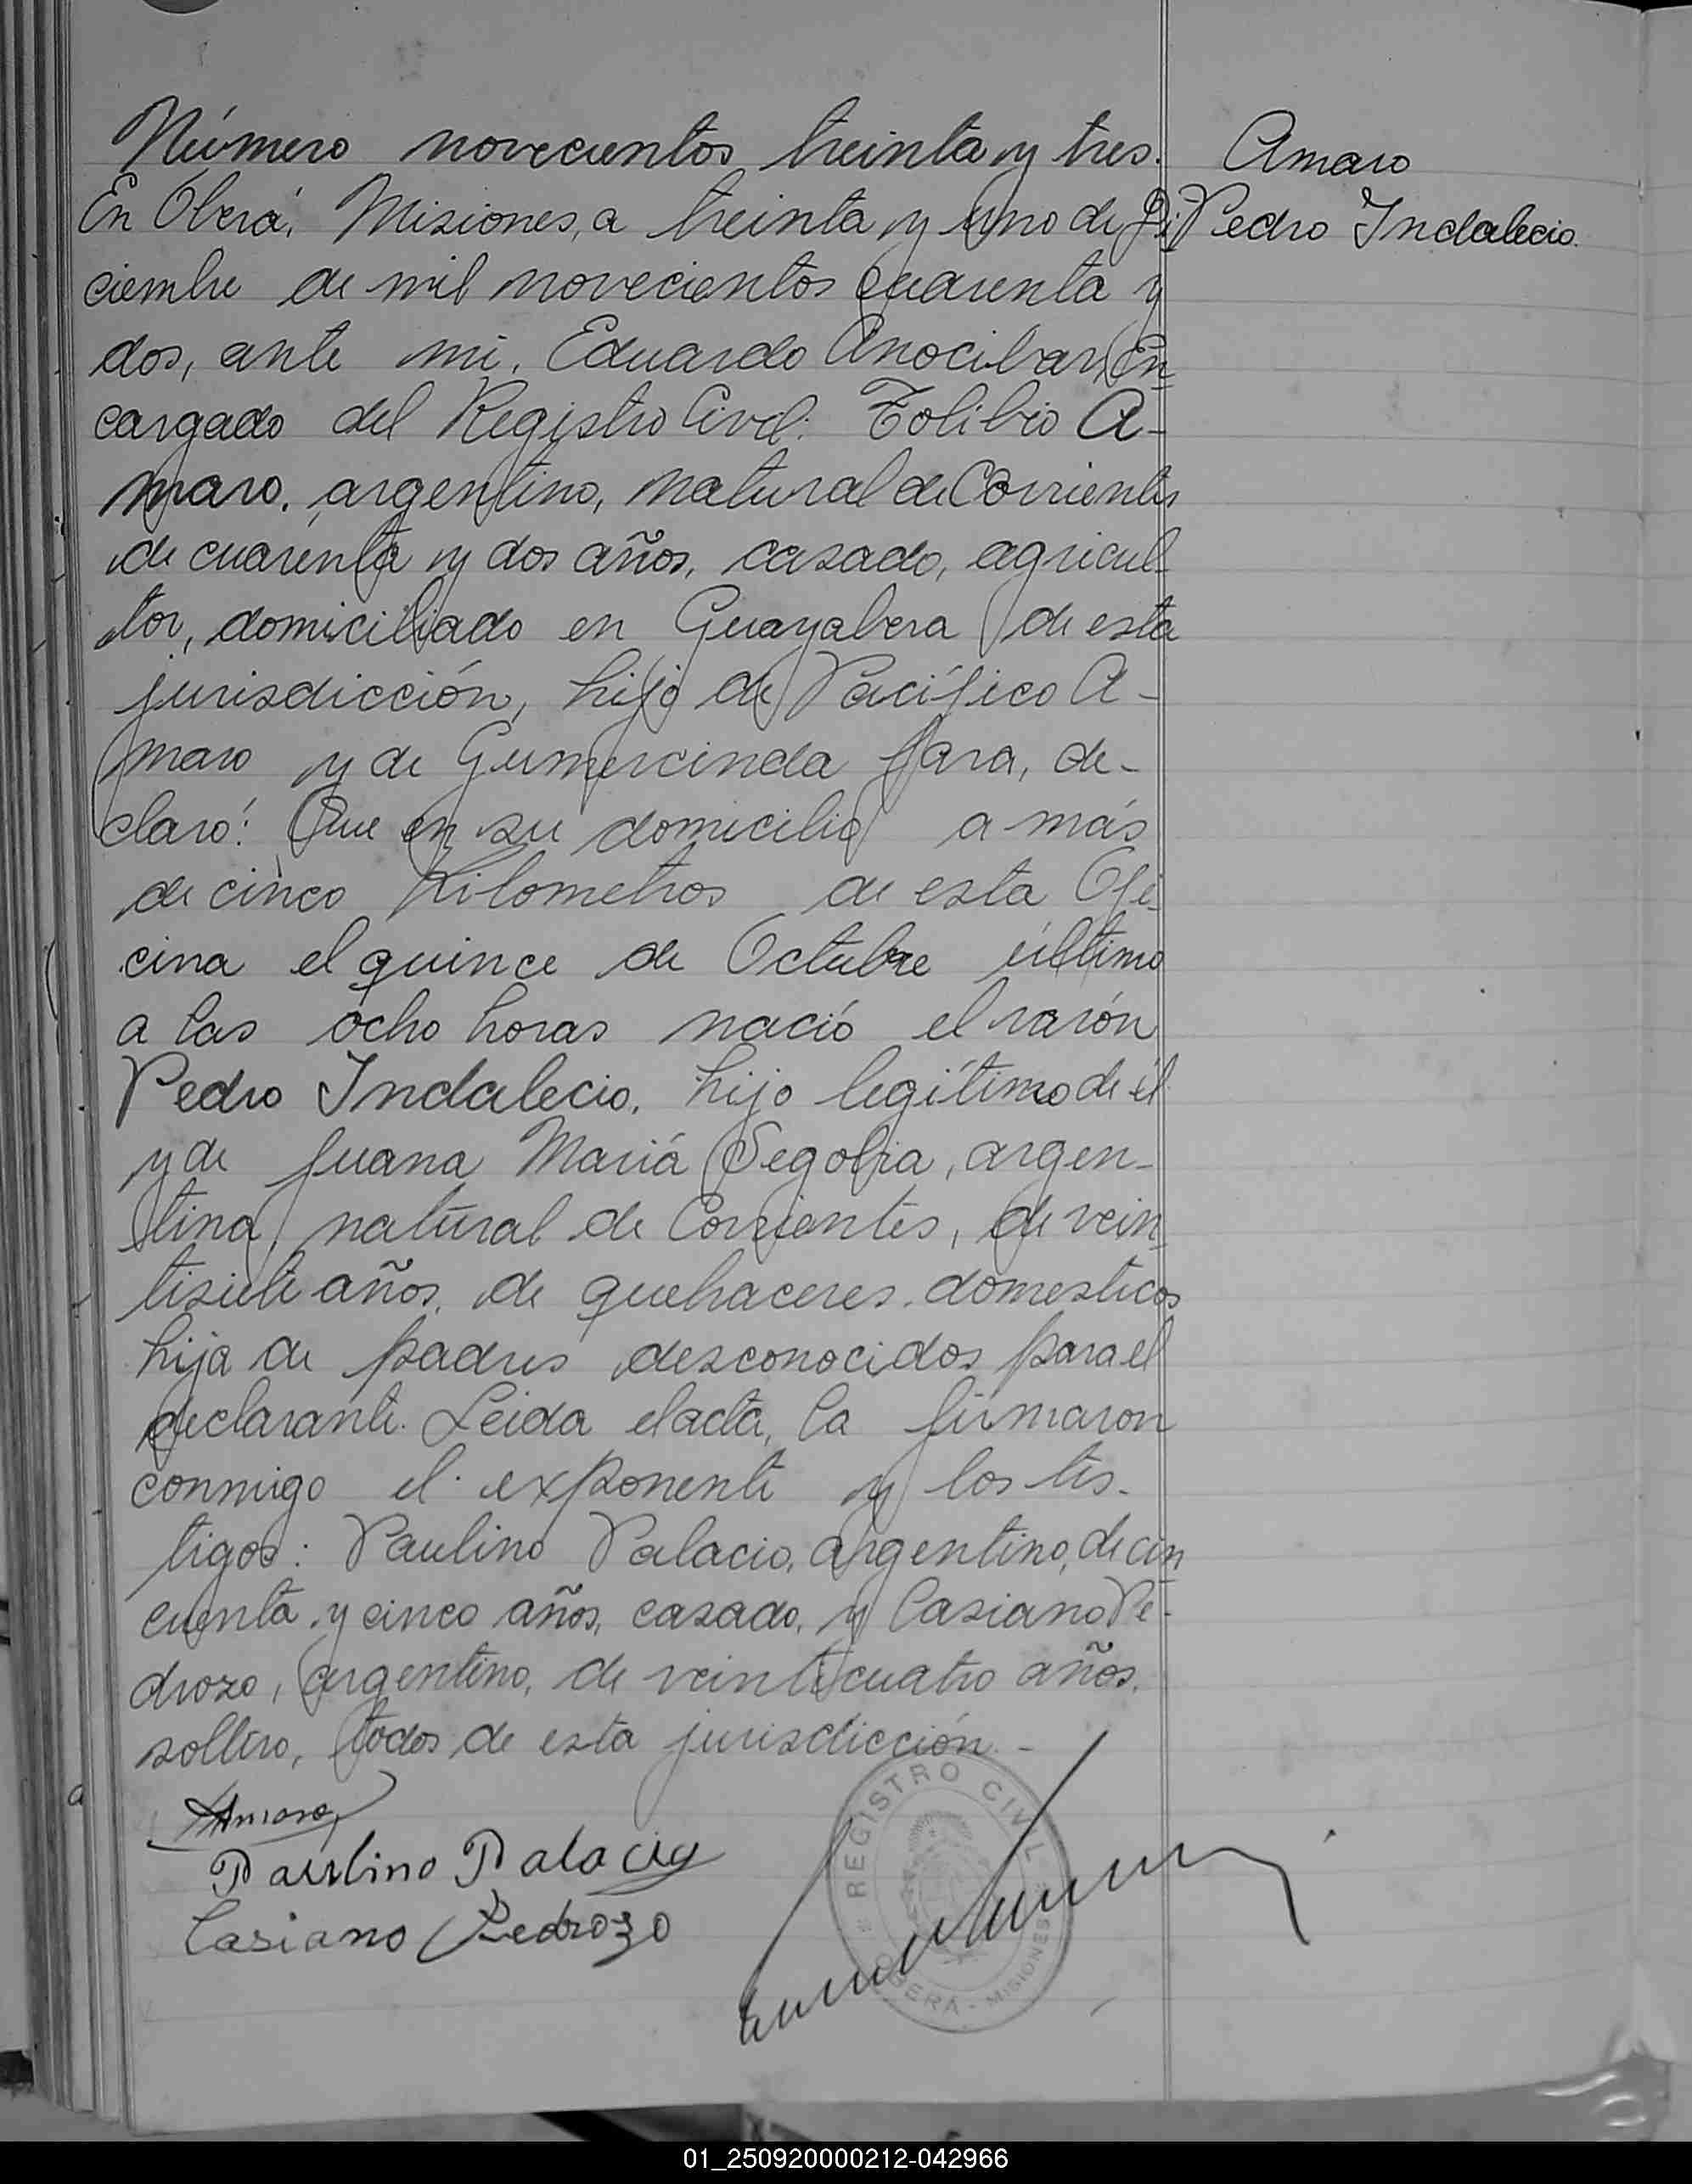 Número novecientos treinta y tres.
Amaro
Pedro Indalecio.
En Oberá, Misiones, a treinta y uno de Di-
ciembre de mil novecientos cuarenta y
dos, ante mi, Eduardo Anocibar, En-
cargado del Registro Civil: Tolibio A-
maro, argentino, natural de Corrientes
de cuarenta y dos años, casado, agricul-
tor, domiciliado en Guayabera de esta
jurisdicción, hijo de Pacífico A-
maro y de Gumercinda Jara, de-
claró: Que en su domicilio a más
de cinco Kilometros de esta Ofi-
cina el quince de Octubre último
a las ocho horas nació el varón
Pedro Indalecio, hijo legítimo de él
y de Juana Mariá Segobia, argen-
tina, natural de Corrientes, de vein-
tisiete años, de quehaceres domesticos
hija de padres desconocidos para el
declarante. Leida el acta, la firmaron
conmigo el exponente y los tes-
tigos: Paulino Palacio, argentino, de cin-
cuenta y cinco años, casado, y Casiano Pe-
drozo, argentino, de veinticuatro años,
soltero, todos de esta jurisdicción.-
Amaro
Paulino Palacio
Casiano Pedrozo
REGISTRO CIVIL
OBERA - MISIONES
01_250920000212-042966